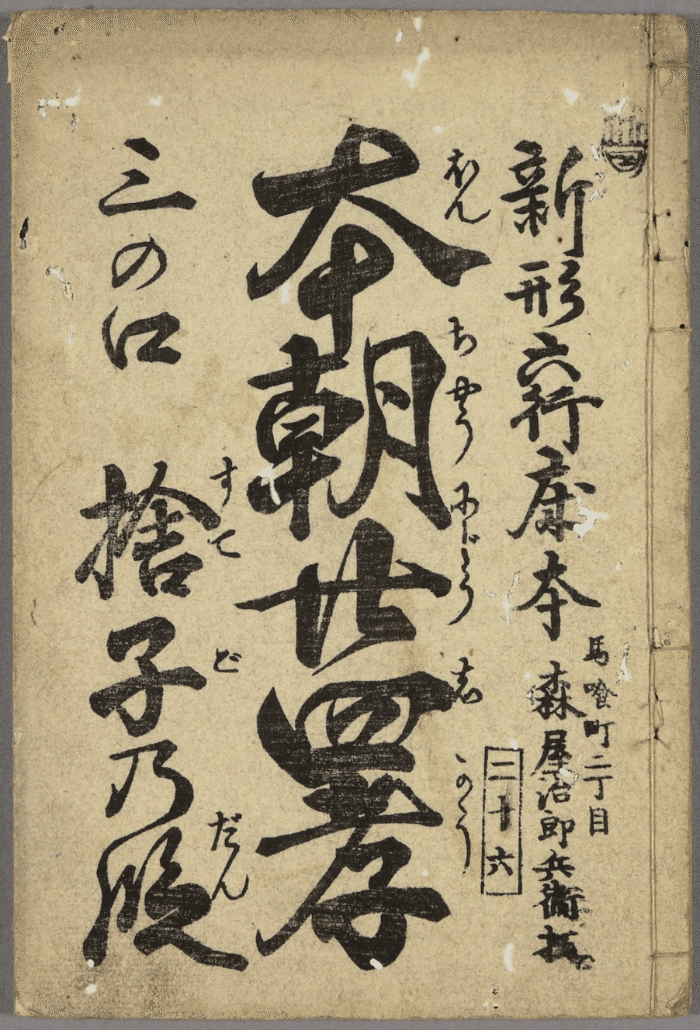 新形六行床本
馬喰町二丁目
森屋治郎兵衛板
二十六
本朝廿四孝
ほんちやうにじうしかう
三の口
捨子乃段
すてごだん